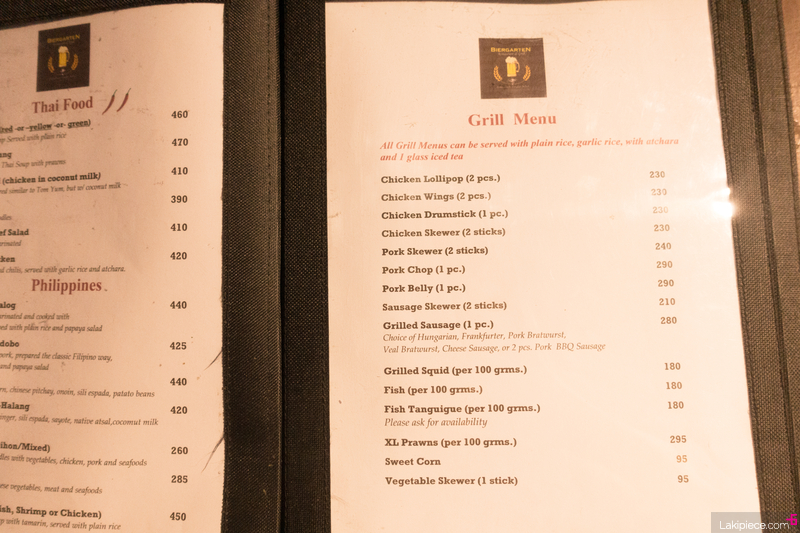 BIERGARTEN
Thai Food
-or- yellow -or- green)
Served with plain rice
460
470
Thai Soup with prawns
(chicken in coconut milk)
410
similar to Tom Yum, but w/ coconut milk
390
Salad
410
420
chilis, served with garlic rice and atchara.
Philippines
440
and cooked with
with plain rice and papaya salad
425
pork, prepared the classic Filipino way,
and papaya salad
440
chinese pitchay, onoin, sili espada, patato beans
Halang
420
sili espada, sayote, native atsal,coconut milk
260
with vegetables, chicken, pork and seafoods
285
vegetables, meat and seafoods
Shrimp or Chicken)
450
with tamarin, served with plain rice
BIERGARTEN
Grill Menu
All Grill Menus can be served with plain rice, garlic rice, with atchara
and 1 glass iced tea
Chicken Lollipop (2 pcs.) 230
Chicken Wings (2 pcs.) 230
Chicken Drumstick (1 pc.) 230
Chicken Skewer (2 sticks) 230
Pork Skewer (2 sticks) 240
Pork Chop (1 pc.) 290
Pork Belly (1 pc.) 290
Sausage Skewer (2 sticks) 210
Grilled Sausage (1 pc.) 280
Choice of Hungarian, Frankfurter, Pork Bratwurst,
Veal Bratwurst, Cheese Sausage, or 2 pcs. Pork BBQ Sausage
Grilled Squid (per 100 grms.) 180
Fish (per 100 grms.) 180
Fish Tanguigue (per 100 grms.) 180
Please ask for availability
XL Prawns (per 100 grms.) 295
Sweet Corn 95
Vegetable Skewer (1 stick) 95
Lakipiece.com